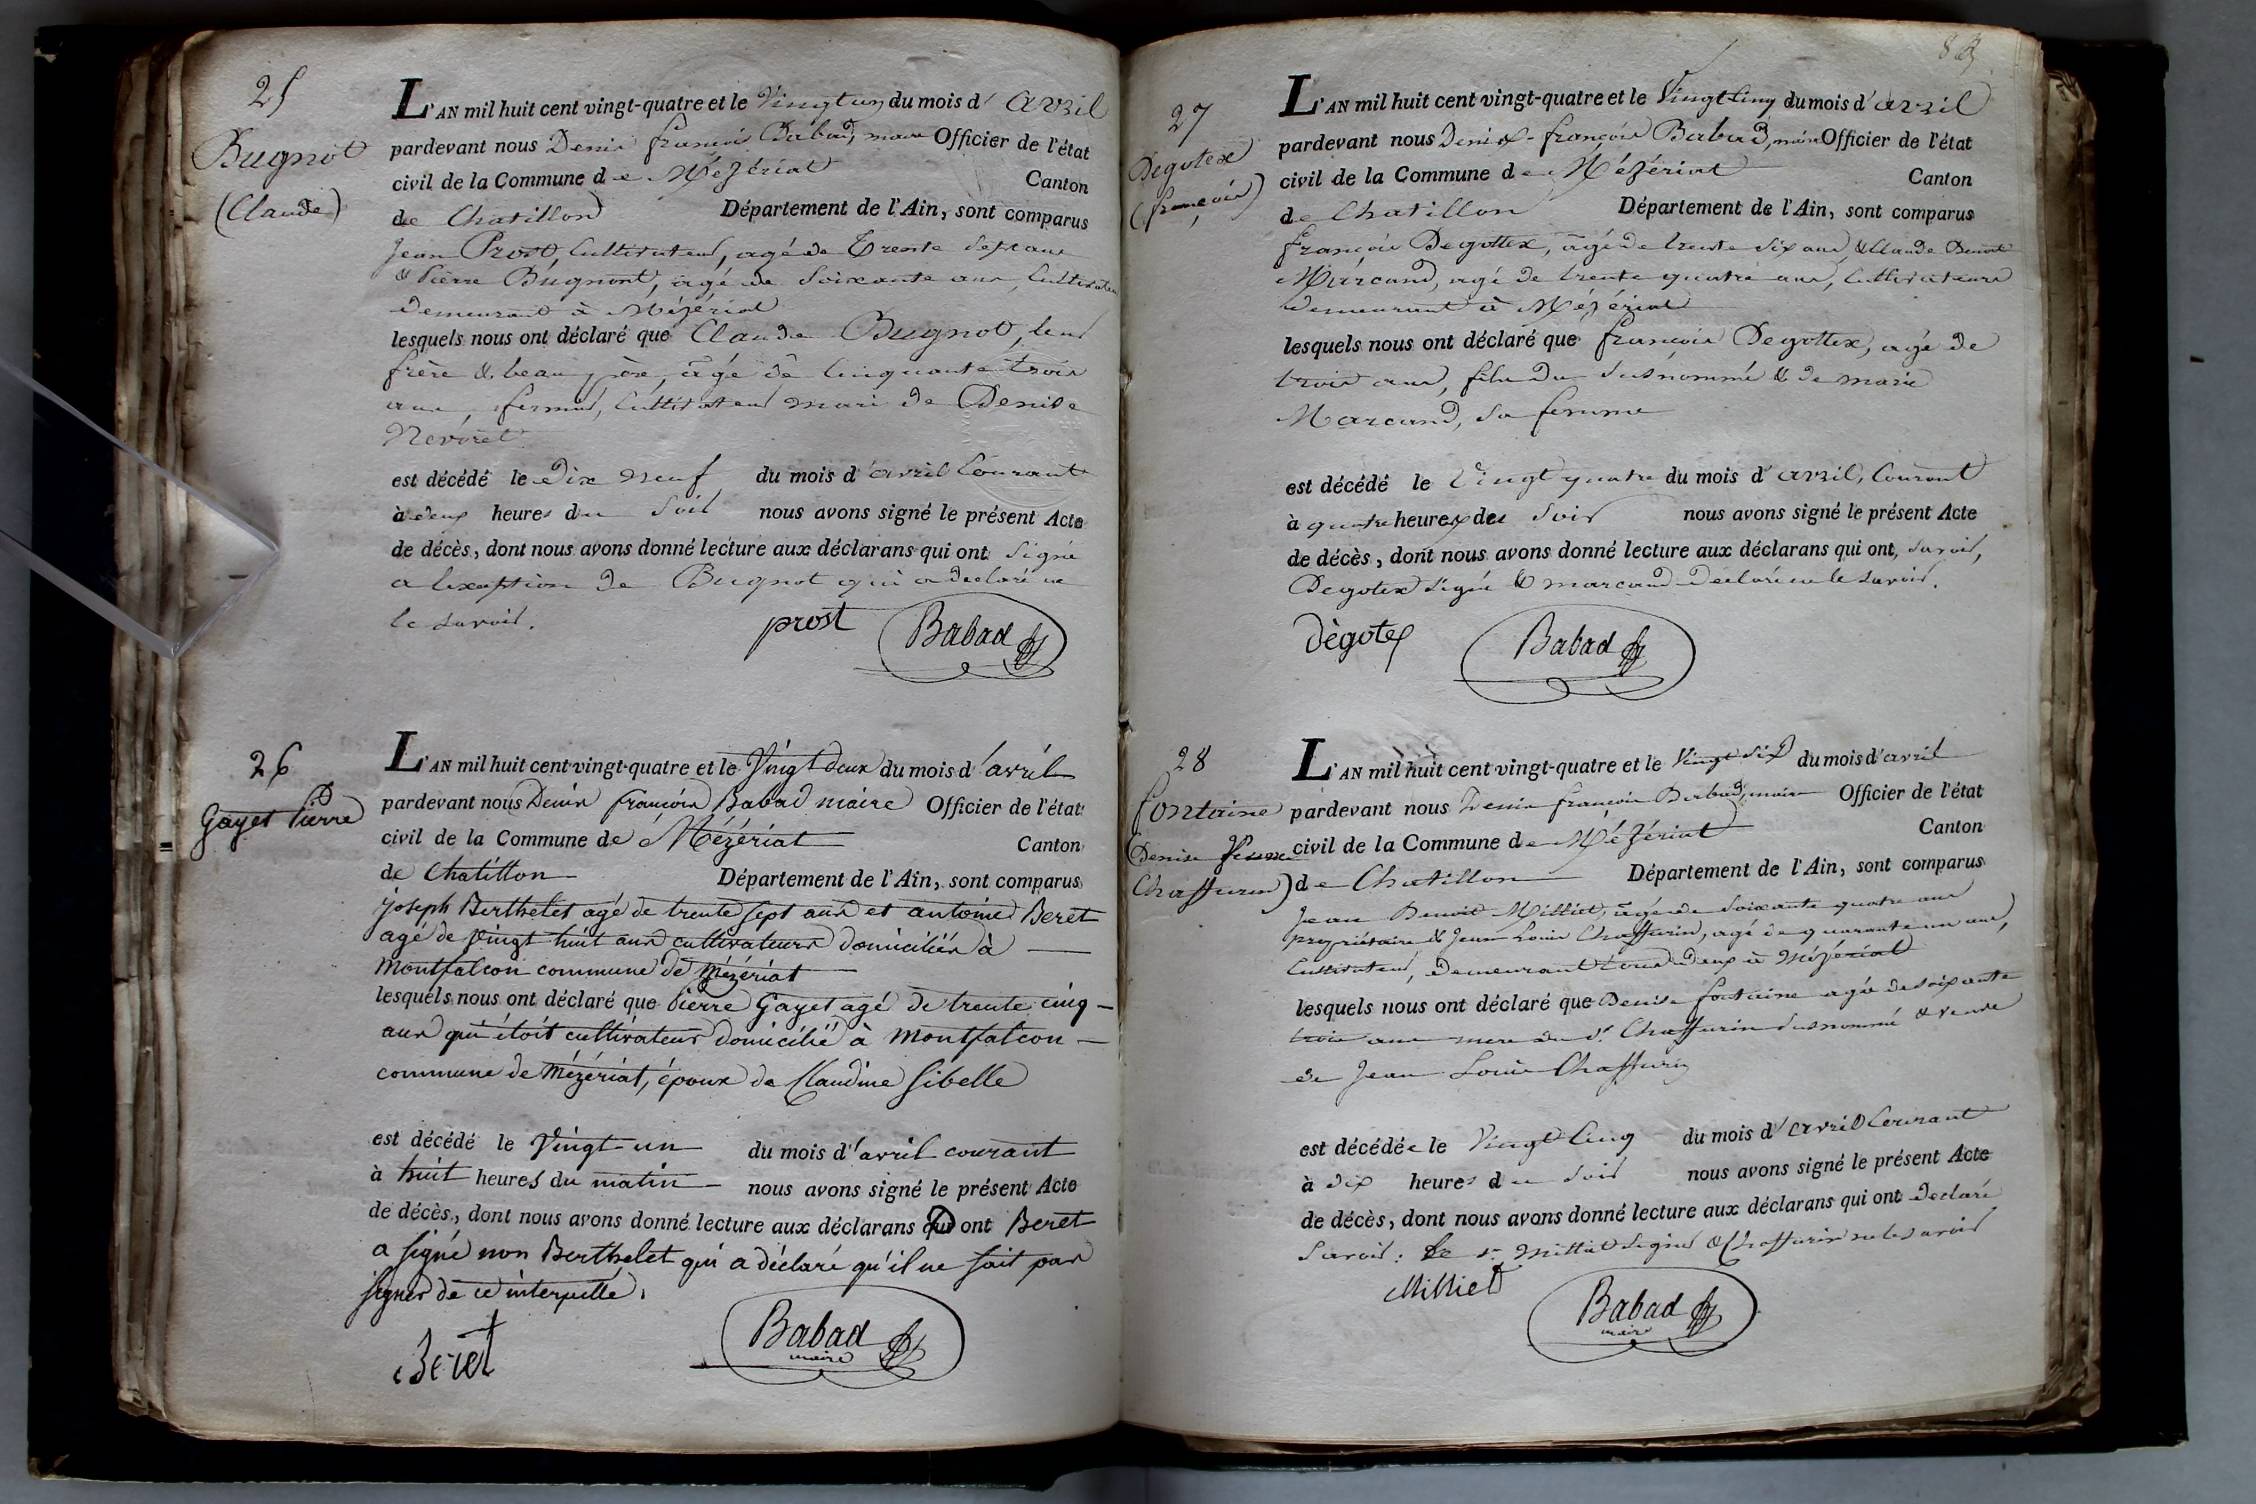 25
Bugnot
(Claude)
L'AN mil huit cent vingt-quatre et le Vingt un du mois d'avril
pardevant nous Denis françois Babad, maire Officier de l'état
civil de la Commune de Mézériat Canton
de Chatillon Département de l'Ain, sont comparus
Jean Prost, Cultivateur, agé de Trente sept ans
& Pierre Bugnont, agé de Soixante ans, Cultivateur
demeurant à Mézériat
lesquels nous ont déclaré que Claude Bugnot, leur
frère & beau père, agé de Cinquante trois
ans, fermier, Cultivateur mari de Denise
Nevoret
est décédé le dix neuf du mois d'avril Courant
à deux heures du Soir nous avons signé le présent Acte
de décès, dont nous avons donné lecture aux déclarans qui ont signé
a lexeption de Bugnot qui a déclaré ne
le savoir.
prost Babad
26
Gayet Pierre
L'AN mil huit cent vingt-quatre et le Vingt deux du mois d'avril
pardevant nous Denis françois Babad maire Officier de l'état
civil de la Commune de Mézériat Canton
de Chatillon Département de l'Ain, sont comparus
joseph Berthelet agé de trente sept ans et antoine Beret
agé de vingt huit ans cultivateurs domiciliés à
Montfalcon commune de Mézériat
lesquels nous ont déclaré que Pierre Gayet agé de trente cinq
ans qui étoit cultivateur domicilié à Montfalcon
commune de Mézériat, époux de Claudine Sibelle
est décédé le Vingt-un du mois d'avril courant
à huit heures du matin nous avons signé le présent Acte
de décès, dont nous avons donné lecture aux déclarans qui ont Beret
a signé non Berthelet qui a déclaré qu'il ne sait pas
signer de ce interpellé.
Beret Babad
maire
27
Degotex
(françois)
L'AN mil huit cent vingt-quatre et le Vingt Cinq du mois d'avril
pardevant nous Denis-françois Babad, maire Officier de l'état
civil de la Commune de Mézériat Canton
de Chatillon Département de l'Ain, sont comparus
françois Degottex, agé de trente six ans, & Claude Benoit
Marcand, agé de trente quatre ans, Cultivateurs
demeurant à Mézériat
lesquels nous ont déclaré que françois Degottex, agé de
trois ans, fils du susnommé & de marie
Marcand, sa femme
est décédé le Vingt quatre du mois d'avril, Courant
à quatre heures du soir nous avons signé le présent Acte
de décès, dont nous avons donné lecture aux déclarans qui ont, savoir,
Degotex signé & marcand déclaré ne le savoir.
dègotex Babad
28
fontaine
(Denise Veuve
Chaffurin)
L'AN mil huit cent vingt-quatre et le Vingt Six du mois d'avril
pardevant nous Denis françois Babad, maire Officier de l'état
civil de la Commune de Mézériat Canton
de Chatillon Département de l'Ain, sont comparus
Jean Benoit Milliet, agé de Soixante quatre ans
propriétaire & Jean Louis Chaffurin, agé de quarante un ans,
Cultivateur, demeurant tous deux à Mézériat
lesquels nous ont déclaré que Denise fontaine agée de soixante
trois ans mere du S.r Chaffurin susnommé & veuve
de Jean Louis Chaffurin
est décédée le Vingt Cinq du mois d'avril Courant
à dix heures du soir nous avons signé le présent Acte
de décès, dont nous avons donné lecture aux déclarans qui ont declaré
savoir: le s.r Milliet signé & Chaffurin ne le savoir
Milliet Babad
maire